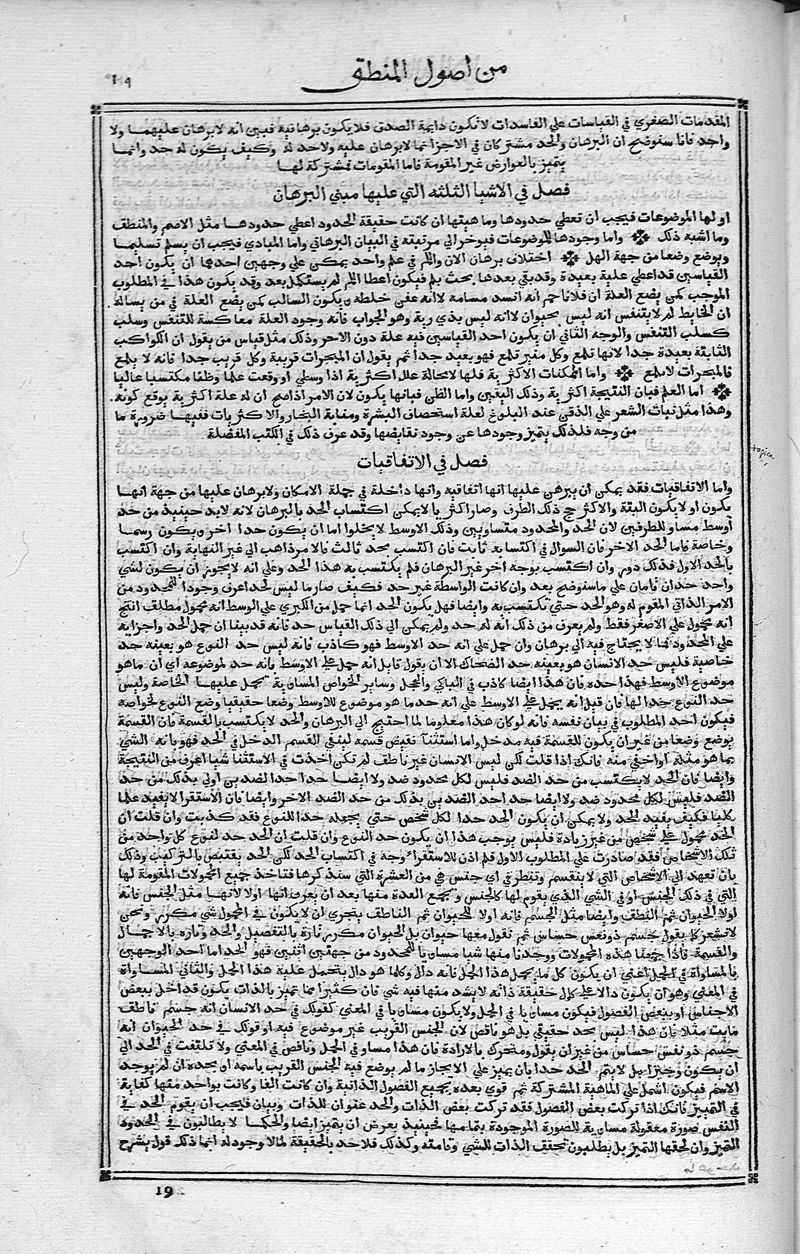 من اصول المنطق
١٩
المقدمات الصغري في القياسات علي الفاسدات لا تكون دايمة الصدق فلا يكون برهانية فبين انه لا برهان عليهما ولا
واحد فانا سنوضح ان البرهان والحد مشتركان في الاجزا فما لا برهان عليه ولا حد له وكيف يكون له حد وانما
يتميز بالعوارض غير المقومة فاما المقومات فمشتركة لها
فصل في الاشيا الثلثه التي عليها مبني البرهان
اولها الموضوعات فيجب ان تعطي حدودها وماهيتها ان كانت حقيقة الحدود اعطي حدودها مثل الاصم والمنطق
وما اشبه ذلك واما وجودها للموضوعات فيوخر الي مرتبته في البيان البرهاني واما المبادي فيجب ان يسلم تسليما
ويوضع وضعا من جهة الهل اختلاف برهان الان واللم في علم واحد يمكن علي وجهين احدهما ان يكون احد
القياسين قد اعطي علية بعيدة وقد بقي بعدها بحث بلم فيكون اعطا اللم لم يستكمل بعد وقد يكون هذا في المطلوب
الموجب كمن يضع العلة ان فلانا حم انه انسد مسامه لانه عفن خلطه ويكون السالب كمن يضع العلة في من يساله
ان الحايط لم لا يتنفس انه ليس بحيوان لانه ليس بذي رية وهو الجواب فانه وجود العلة معاكسة للتنفس وسلب
كسلب التنفس والوجه الثاني ان يكون احد القياسين فيه علة دون الاخر وذلك مثل قياس من يقول ان الكواكب
الثابتة بعيدة جدا لانها تلمع وكل منير تلمع فهو بعيد جدا ثم يقول ان المتحيرات قريبة وكل قريب جدا فانه لا يلمع
فالمتحيرات لا تلمع واما الممكنات الاكثرية فلها لا محالة علل اكثرية اذا وسطي او وقعت علما وظنا مكتسبا عاليا
اما العلم فبان النتيجة اكثرية وذلك اليقين واما الظن فبانها يكون لان الامر اذا صح ان له علة اكثرية يوقع كونه
وهذا مثل نبات الشعر علي الذقن عند البلوغ لعلة استحصاف البشرة ومتانة البخار والاكثريات ففيها ضرورة ما
من وجه فلذلك يتميز وجودها عن وجود نقايضها وقد عرف ذلك في الكتب المفصلة
فصل في الاتفاقيات
واما الاتفاقيات فقد يمكن ان يبرهن عليها انها اتفاقية وانها داخلة في جملة الامكان ولا برهان عليها من جهة انها
يكون او لا يكون البتة والاكثر حج ذلك الطرف وصار اكثريا لا يمكن اكتساب الحد بالبرهان لانه لا بد حينيذ من حد
اوسط مساو للطرفين لان الحد والمحدود متساويين وذلك الاوسط لا يخلوا اما ان يكون حدا اخر او يكون رسما
وخاصة فاما الحد الاخر فان السوال في اكتسابه ثابت فان اكتسب بحد ثالث فالامر ذاهب الي غير النهاية وان اكتسب
بالحد الاول فذلك دور وان اكتسب بوجه اخر غير البرهان فلم يكتسب به هذا الحد وعلي انه لا يجوز ان يكون لشي
واحد حدان تامان علي ما سنوضح بعد وان كانت الواسطة غير حد فكيف صار ما ليس بحد اعرف وجودا للمحدود من
الامر الذاتي المقوم له وهو الحد حتي يكتسب به وايضا فهل يكون الحد انما حمل من الكبري علي الوسط انه محمول مطلقا انتج
انه محمول علي الاصغر فقط ولم يعرف من ذلك انه له حد ولم يمكن الي ذلك القياس حد فانه قد بينا ان حمل الحد واجزايه
علي المحدود مما لا يحتاج فيه الي برهان وان حمل علي انه حد الاوسط فهو كاذب فانه ليس حد النوع هو بعينه حد
خاصية فليس حد الانسان هو بعينه حد الضحاك الا ان يقول قايل انه حمل علي الاوسط بانه حد لموضوعه اي ان ما هو
موضوع الاوسط فهذا حده فان هذا ايضا كاذب في الباكي والخجل وساير الخواص المساوية محمل عليها الخاصة وليس
حد النوع حدا لها فان قيل انه يحمل علي الاوسط علي انه حد ما هو موضوع للاوسط وضعا حقيقيا وضع النوع لخواصه
فيكون احد المطلوب في بيان نفسه فانه لو كان هذا معلوما لما احتيج الي البرهان والحد لا يكتسب بالقسمة فان القسمة
يوضع وضعا من غير ان يكون للقسمة فيه مدخل واما استثنا نقيض قسمه ليبقي القسم الداخل في الحد فهو بانه الشي
بما هو مثله او اخفي منه فانك اذا قلت لكن ليس الانسان غير ناطق لم تكن اخذت في الاستثنا شيا اعرف من النتيجة
وايضا فان الحد لا يكتسب من حد الضد فليس لكل محدود ضد ولا ايضا حد احد الضدين اولي بذلك من حد
الضد فليس لكل محدود ضد ولا ايضا حد احد الضدين بذلك من حد الضد الاخر وايضا فان الاستقرا لا يفيد علما
كليا فكيف يفيد الحد ولا يمكن ان يكون الحد حدا لكل شخص حتي يجعله حدا للنوع فقد كذبت وان قلت ان
الحد محمول علي شخص من غير زيادة فليس يوجب هذا ان يكون حد النوع وان قلت ان الحد حد لنوع كل واحد من
تلك الاشخاص فقد صادرت علي المطلوب الاول فلم اذن للاستقراء وجه في اكتساب الحد لكن الحد يقتبض بالتركيب وذلك
بان تعهد الي الاشخاص التي لا ينقسم وتنظر في اي جنس هي من العشرة التي سنذكرها فتاخذ جميع المحمولات المقومة لها
التي في ذلك الجنس او في الشي الذي يقوم لها كالجنس ونجمع العدة منها بعد ان يعرف انها اولا لانها مثل الجنس فانه
اولا للحيوان ثم النطق وايضا مثل الجسم فانه اولا للحيوان ثم الناطق بتحري ان لا يكون في المحمول شي مكرر ونحن
لا نشعر كما يقول جسم ذو نفس حساس ثم نقول معها حيوان بل الحيوان مكرر تارة بالتفصيل والحد وتارة بالاجمال
والقسمة فاذا جمعنا هذه المحمولات ووجدنا منها شيا مساويا للمحدود من جهتين اثنين فهو الحد اما احد الوجهين
بالمساواة في الحمل اعني ان يكون كل ما يحمل هذا الحمل فانه دال وكلما هو دال يتحمل عليه هذا الحمل والثاني المساواة
في المعني وهو ان يكون دالا علي كمال حقيقة ذاته لا يشذ منها فيه شي فان كثيرا مما تميز بالذات يكون قد اخل ببعض
الاجناس او ببعض الفصول فيكون مساويا في الحمل ولا يكون مساويا في المعني كقولك في حد الانسان انه جسم ناطق
مايت مثلا فان هذا ليس بحد حقيقي بل هو ناقص لان الجنس القريب غير موضوع فيه او قولك في حد الحيوان انه
جسم ذو نفس حساس من غير ان يقول ومتحرك بالارادة فان هذا مساو في الحمل وناقص في المعني ولا تلتفت في الحد الي
ان يكون وجيزا بل لا يتم الحد حدا بان يميز علي الايجاز ما لم يوضع فيه الجنس القريب باسمه او بحده ان لم يوجد
الاسم فيكون اشتمل علي الماهية المشتركة ثم قوي بعده بجميع الفصول الذاتية وان كانت الفا وكانت بواحد منها كفاية
في التمييز فانك اذا تركت بعض الفصول فقد تركت بعض الذات والحد عنوان للذات وبيان فيجب ان يقوم الحد في
النفس صورة معقولة مساوية للصورة الموجودة بتمامها فحينيذ يعرض ان يتميز ايضا والحكما لا يطالبون في الحدود
التمييز وان لحقها التمييز بل يطلبون تحقق الذات للشي وتامته ولذلك فلا حد بالحقيقة لما لا وجود له انما ذلك قول يشرح
topica
19